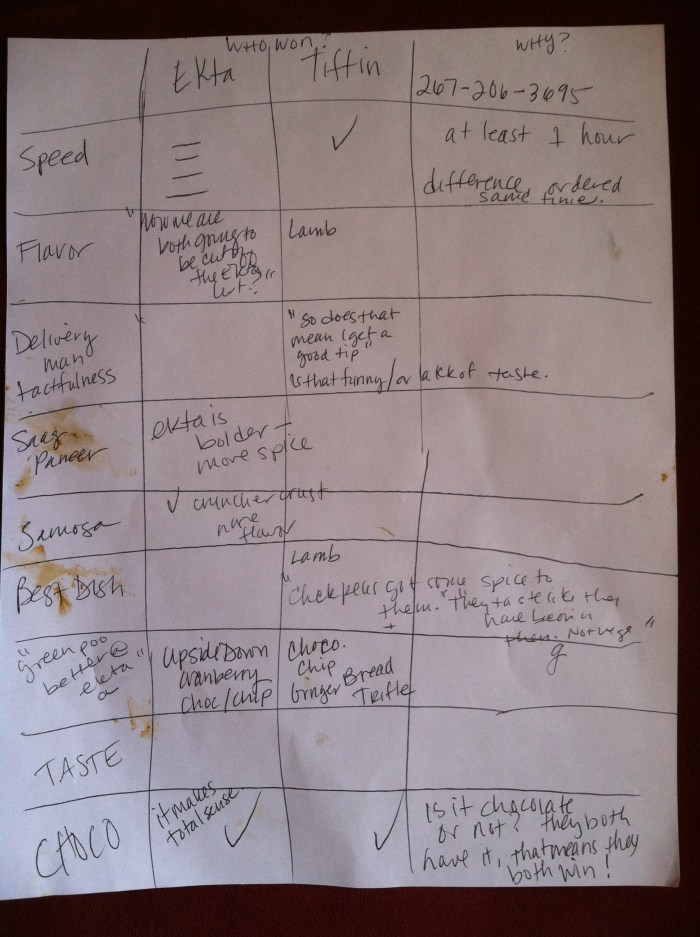 who won?
why?
Ekta
Tiffin
267-206-3695
Speed
✓
at least 1 hour
difference ordered
same time.
Flavor
"now we are
both going to
be cut off
the Ekta
list?"
Lamb
Delivery
man
tactfulness
"So does that
mean I get a
good tip"
Is that funny/or lack of taste.
Saag
Paneer
ekta is
bolder –
more spice
Samosa
✓ cruncher crust
more
flavor
Best Dish
Lamb
"Chckpeas got some spice to
them." "They taste like they
+
have bacon in
them. Not vege"
g
"green poo
better @
ekta"
Upside Down
cranberry
Choc/chip
Choco.
chip
Ginger Bread
Trifle
TASTE
CHOCO
it makes
total sense
✓
✓
Is it chocolate
or not? they both
have it, that means they
both win!